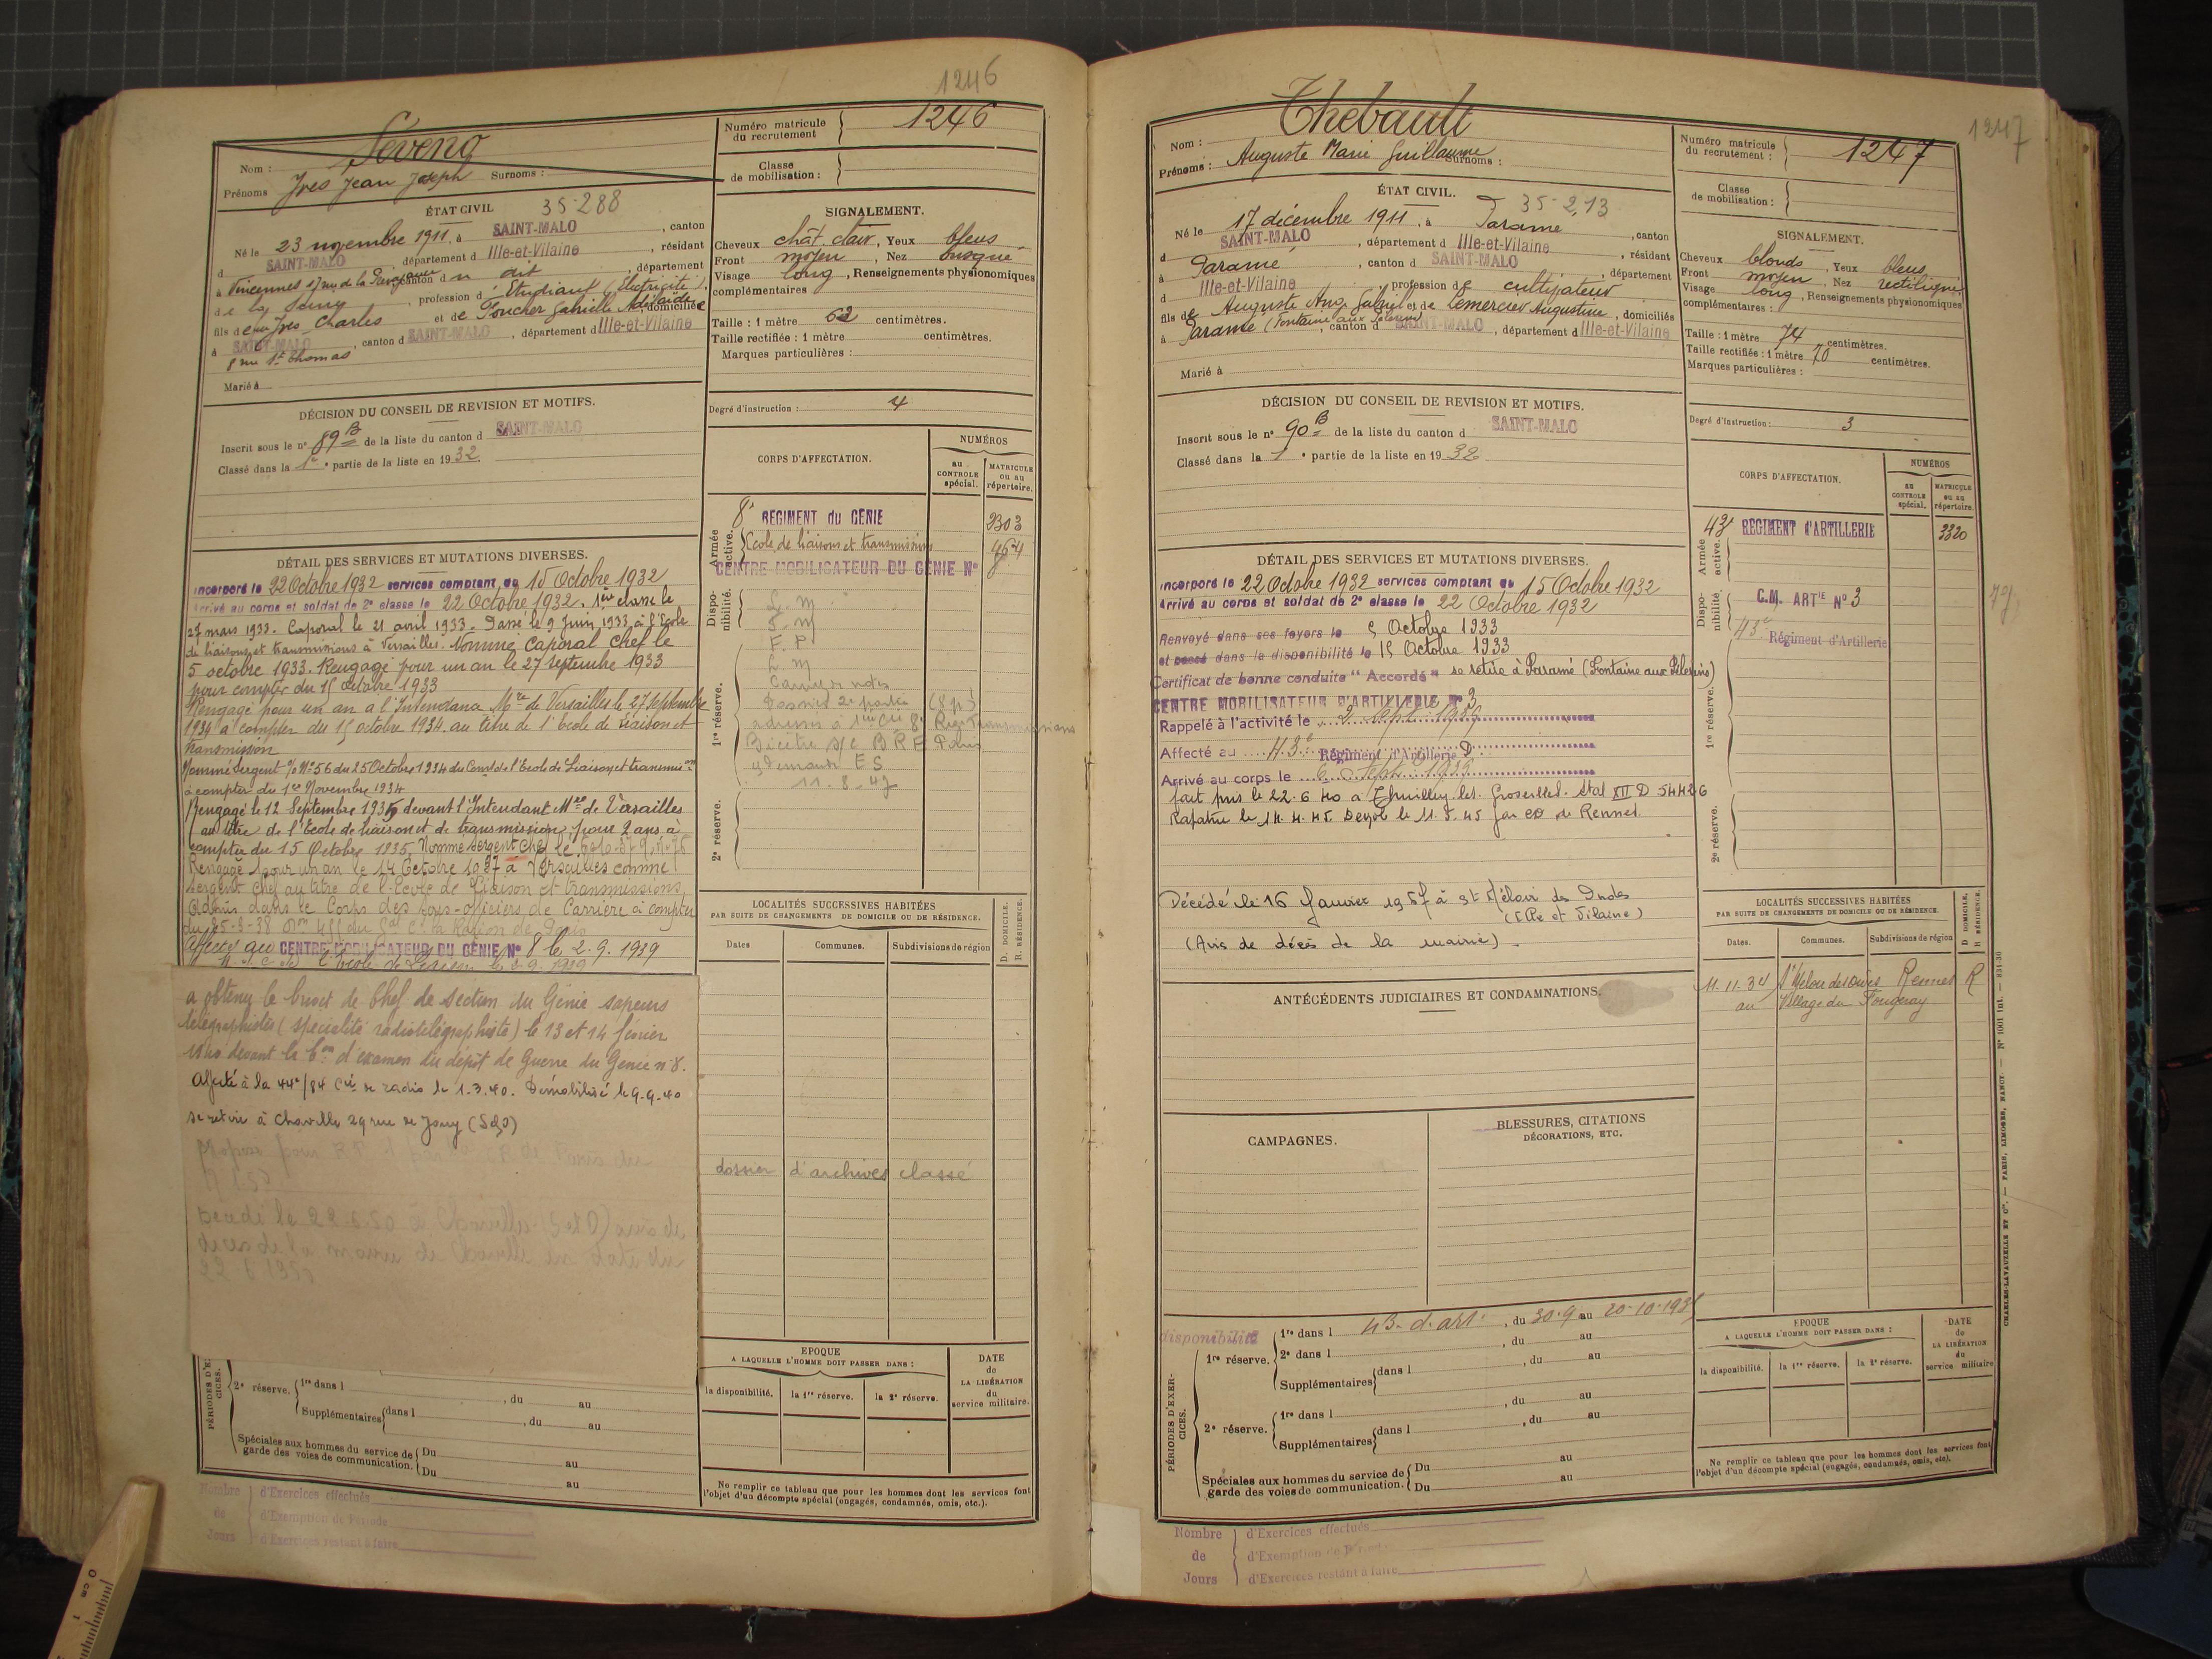 1246
Séveno
Nom :
Prénoms Yves Jean Joseph Surnoms :
Numéro matricule du recrutement 1246
Classe de mobilisation :
ÉTAT CIVIL 35-288
Né le 23 novembre 1911, à SAINT-MALO, canton
d SAINT-MALO, département d Ille-et-Vilaine, résidant
à Vincennes 17 rue de la canton d dit, département
de la Seine, profession d'Étudiant (Électricité),
fils de Yves Charles et de Foucher Gabrielle Adélaïde, domiciliés
à SAINT-MALO, canton d SAINT-MALO, département d Ille-et-Vilaine
8 rue St Thomas
Marié à
SIGNALEMENT.
Cheveux chât. clair, Yeux bleus
Front moyen, Nez busqué
Visage long, Renseignements physionomiques
complémentaires
Taille : 1 mètre 62 centimètres.
Taille rectifiée : 1 mètre centimètres.
Marques particulières :
Degré d'instruction : 4
DÉCISION DU CONSEIL DE REVISION ET MOTIFS.
Inscrit sous le n° 89 B de la liste du canton d SAINT-MALO
Classé dans la 1e partie de la liste en 1932.
CORPS D'AFFECTATION.
NUMÉROS
au CONTROLE spécial.
MATRICULE ou au répertoire.
Armée active.
8e REGIMENT du GENIE 2303
Ecole de liaisons et transmissions 464
CENTRE MOBILISATEUR DU GENIE N° 8
Disponibilité.
L. M
F. P
L. M
1re réserve.
Carnet de notes
11-8-47
2e réserve.
DÉTAIL DES SERVICES ET MUTATIONS DIVERSES.
Incorporé le 22 Octobre 1932 services comptant du 15 Octobre 1932
Arrivé au corps et soldat de 2e classe le 22 Octobre 1932. 1ère classe le
27 mars 1933. Caporal le 21 avril 1933. Passé le 9 Juin 1933 à l'école
de liaisons et transmissions à Versailles. Nommé Caporal chef le
5 octobre 1933. Rengagé pour un an le 27 septembre 1933
pour compter du 15 octobre 1933
Rengagé pour un an à l'Intendance Mre de Versailles le 27 septembre
1934 à compter du 15 octobre 1934 au titre de l'école de liaison et
transmission
Nommé Sergent N° 56 du 25 Octobre 1934 du Comt de l'Ecole de Liaison et transmion
à compter du 1er Novembre 1934
Rengagé le 12 Septembre 1935 devant l'Intendant Mre de Versailles
au titre de l'Ecole de liaison et de transmission pour 2 ans à
compter du 15 Octobre 1935. Nommé sergent chef le
Rengagé pour un an le 14 Octobre 1937 à Versailles comme
sergent chef au titre de l'Ecole de Liaison et transmissions
Admis dans le Corps des sous-officiers de Carrière à compter
du 25-3-38
Affecté au CENTRE MOBILISATEUR DU GENIE N° 8 le 2.9.1939
a obtenu le brevet de Chef de section du Génie sapeurs
télégraphistes (spécialité radiotélégraphiste) le 13 et 14 février
1940 devant la Con d'examen du dépôt de Guerre du Génie n° 8.
Affecté à la 44e/84 Cie de radio le 1.3.40. Démobilisé le 9-9-40
se retire à Chaville 29 rue de Jouy (S&O)
Proposé pour
Décédé le 22 6.50 à Chaville (S et O) avis de
décès de la mairie de Chaville en date du
22 6 1950
LOCALITÉS SUCCESSIVES HABITÉES
PAR SUITE DE CHANGEMENTS DE DOMICILE OU DE RÉSIDENCE.
Dates Communes. Subdivisions de région
D. DOMICILE. R. RÉSIDENCE.
dossier d'archives classé
EPOQUE
A LAQUELLE L'HOMME DOIT PASSER DANS :
la disponibilité. la 1re réserve. la 2e réserve.
DATE de LA LIBÉRATION du service militaire.
Ne remplir ce tableau que pour les hommes dont les services font
l'objet d'un décompte spécial (engagés, condamnés, omis, etc.).
PÉRIODES D'EXERCICES.
2e réserve. 1re dans l , du au
Supplémentaires dans l , du au
Spéciales aux hommes du service de garde des voies de communication. Du au
Du au
Nombre de Jours
d'Exercices effectués
d'Exemption de Période
d'Exercices restant à faire
1247
Thébault
Nom :
Prénoms : Auguste Marie Guillaume Surnoms :
Numéro matricule du recrutement : 1247
Classe de mobilisation :
ÉTAT CIVIL. 35-2,13
Né le 17 décembre 1911, à Paramé, canton
d SAINT-MALO, département d Ille-et-Vilaine, résidant
à Paramé, canton d SAINT-MALO, département
d Ille-et-Vilaine, profession de cultivateur
fils de Auguste Ang. Gabriel et de Lemercier Augustine, domiciliés
à Paramé (Fontaine aux Pèlerins), canton d SAINT-MALO, département d Ille-et-Vilaine
Marié à
SIGNALEMENT.
Cheveux blonds, Yeux bleus
Front moyen, Nez rectiligne
Visage long, Renseignements physionomiques
complémentaires :
Taille : 1 mètre 74 centimètres.
Taille rectifiée : 1 mètre 70 centimètres.
Marques particulières :
Degré d'instruction : 3
DÉCISION DU CONSEIL DE REVISION ET MOTIFS.
Inscrit sous le n° 90 B de la liste du canton d SAINT-MALO
Classé dans la 1e partie de la liste en 1932
CORPS D'AFFECTATION.
NUMÉROS
au CONTROLE spécial.
MATRICULE ou au répertoire.
Armée active.
43e REGIMENT d'ARTILLERIE 3320
Disponibilité.
C.M. ARTIE N° 3
43e Régiment d'Artillerie
1re réserve.
2e réserve.
DÉTAIL DES SERVICES ET MUTATIONS DIVERSES.
Incorporé le 22 Octobre 1932 services comptant du 15 Octobre 1932
Arrivé au corps et soldat de 2e classe le 22 Octobre 1932
Renvoyé dans ses foyers le 5 Octobre 1933
et passé dans la disponibilité le 15 Octobre 1933
Certificat de bonne conduite "Accordé" se retire à Paramé (Fontaine aux Pèlerins)
CENTRE MOBILISATEUR D'ARTILLERIE N° 3
Rappelé à l'activité le 2 sept 1939
Affecté au 43e Régiment d'Artillerie D
Arrivé au corps le 6 Sept. 1939
fait pris le 22.6.40 à Thuilley les Groseilles. Stal XII D 54426
Rapatrié le 14.4.45 Demob le 11.5.45 par CD de Rennes.
Décédé le 16 Janvier 1957 à St Méloir des Ondes
(Ille et Vilaine)
(Avis de décès de la mairie).
ANTÉCÉDENTS JUDICIAIRES ET CONDAMNATIONS.
CAMPAGNES.
BLESSURES, CITATIONS
DÉCORATIONS, ETC.
LOCALITÉS SUCCESSIVES HABITÉES
PAR SUITE DE CHANGEMENTS DE DOMICILE OU DE RÉSIDENCE.
Dates. Communes. Subdivisions de région
D DOMICILE. R RÉSIDENCE.
11.11.34 St Meloir des Ondes Rennes R
au Village du Fougeray
disponibilité
PÉRIODES D'EXERCICES.
1re réserve. 1re dans l 43e d'art. , du 30.9 au 20-10-193
2e dans l , du au
Supplémentaires dans l , du au
2e réserve. 1re dans l , du au
Supplémentaires dans l , du au
Spéciales aux hommes du service de garde des voies de communication. Du au
Du au
EPOQUE
A LAQUELLE L'HOMME DOIT PASSER DANS :
la disponibilité. la 1re réserve. la 2e réserve.
DATE de LA LIBÉRATION du service militaire
Ne remplir ce tableau que pour les hommes dont les services font
l'objet d'un décompte spécial (engagés, condamnés, omis, etc).
Nombre de Jours
d'Exercices effectués
d'Exemption de Période
d'Exercices restant à faire
CHARLES-LAVAUZELLE ET Cie. — PARIS, LIMOGES, NANCY. — N° 1001 int. — 831-30
0 cm 1